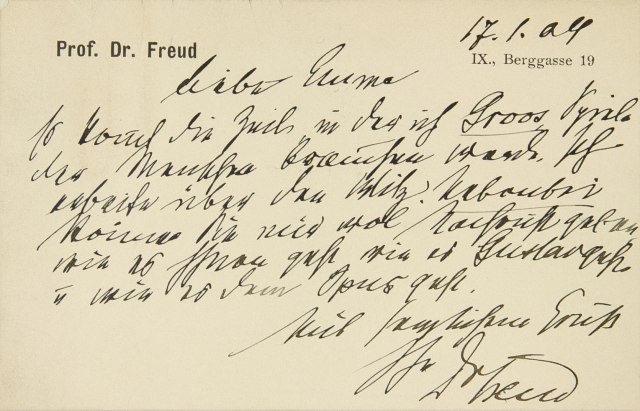 Prof. Dr. Freud
17.1.04
IX., Berggasse 19
Liebe Emma
Es kommt die Zeit, in der ich Groos, Spiele
der Menschen brauchen werde. Ich
arbeite über den Witz. Nebenbei
können Sie mir wol Nachricht geben
wie es Ihnen geht, wie es Gustav geht
u wie es dem Opus geht.
Mit herzlichem Gruß
Ihr Dr Freud